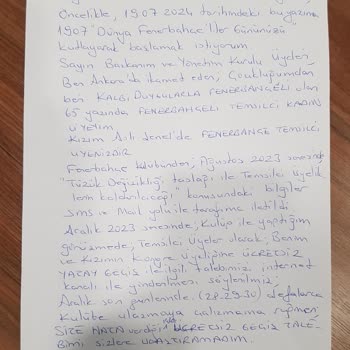 Öncelikle, 19.07.2024 tarihindeki bu yazıma,
1907 "Dünya Fenerbahçe'liler Gününüzü"
kutlayarak başlamak istiyorum
Sayın Başkanım ve Yönetim Kurulu Üyeleri,
Ben Ankara'da ikamet eden, Çocukluğumdan
beri KALBİ DUYGULARLA FENERBAHÇELİ olan
65 yaşında FENERBAHÇELİ TEMSİLCİ KADIN
ÜYEYİM
Kızım Aslı Şenel'de FENERBAHÇE TEMSİLCİ
ÜYENİZDİR
Fenerbahçe Kulübünden, Ağustos 2023 senesinde
"Tüzük Değişikliği taslağı ile Temsilci üyelik
lerin kaldırılacağı" konusundaki bilgiler
SMS ve Mail yolu ile tarafıma iletildi
Aralık 2023 senesinde, Kulüp ile yaptığım
görüşmede, Temsilci Üyeler olarak, Benim
ve Kızımın Kongre Üyeliğine ÜCRETSİZ
YATAY GEÇİŞ ile ilgili talebimiz internet
kanalı ile gönderilmesi söylenmiş,
Aralık son günlerinde (28.29.30) defalarca
Kulübe ulaşmaya çalışmama rağmen
SİTE HATA verdiği ÜCRETSİZ GEÇİŞ TALE
BİMİ sizlere ULAŞTIRAMADIM.